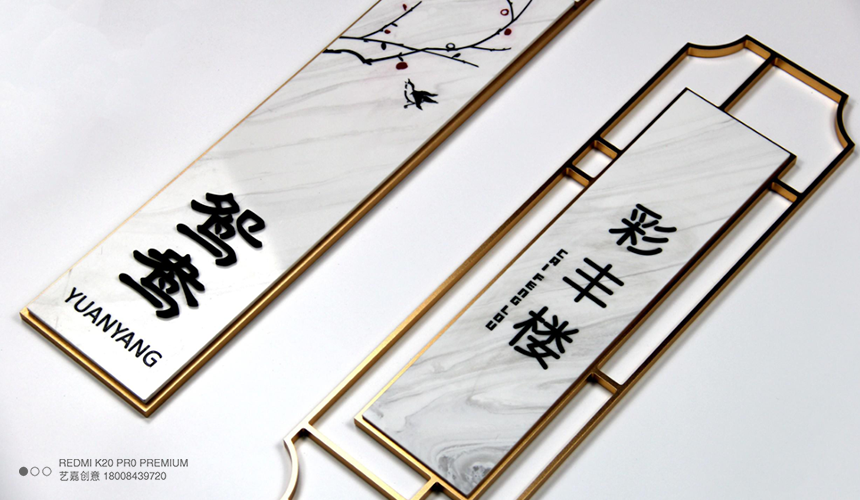 鸳鸯
YUANYANG
彩丰楼
CAI FENG LOU
REDMI K20 PR0 PREMIUM
艺嘉创意 18008439720